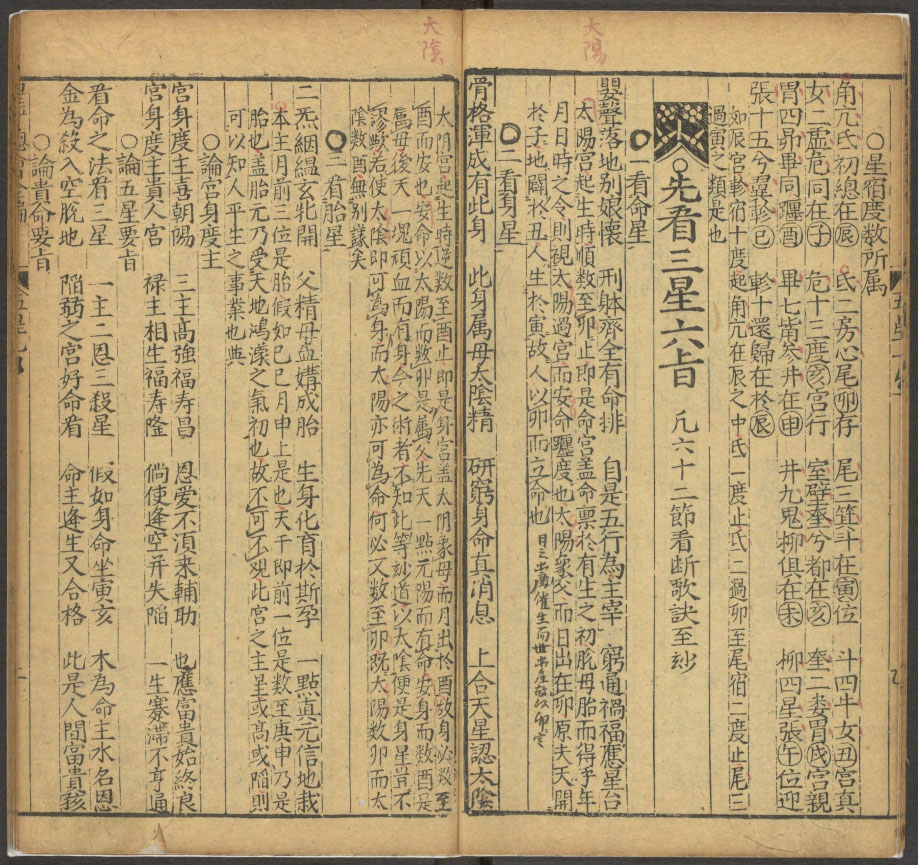 太陽
○星宿度数所属
角亢氐初總在辰　氐二房心尾卯存　尾三箕斗在寅位　斗四牛女丑宮真
女二虛危同在子　危十三度亥宮行　室壁奎兮都在亥　奎二婁胃戌宮親
胃四昴畢同躔酉　畢七觜參井在申　井九鬼柳但在未　柳四星張午位迎
張十五兮翼軫巳　軫十還歸在於辰
如辰宮軫宿十度起角亢在辰之中氐一度止氐二過卯至尾宿二度止尾三
過寅之類是也
○先看三星六旨　凡六十二節看断歌訣至玅
○一看命星
嬰聲落地別娘懷　刑躰齊全有命排　自是五行為主宰　窮通禍福應星台
太陽宮起生時順数至卯止即是命宮盖命禀於有生之初脫母胎而得乎年
月日時之令則視太陽過宮而安命躔度也太陽象父而日出在卯原夫天開
於子地闢於丑人生於寅故人以卯而立命也
○二看身星
骨格渾成有此身　此身属母太陰精　研窮身命真消息　上合天星認太陰
太陰
太阴宮起生時逆数至酉止即是身宮盖太阴象母而月出於酉故身必数至
酉而安也安命以太陽而数卯是属父先天一點元陽而有命安身而数酉是
属母後天一塊頑血而有身今之術者不知此等玅道以太陰便是身星豈不
謬歟若使太陰即可為身而太陽亦可為命何必又数至卯既太陽数卯而太
陰数酉無別議矣
○三看胎星
二炁絪縕玄牝開　父精母血媾成胎　生身化育於斯孕　一點真元信地栽
本主月前三位是胎假如己巳月申上是也天干即前一位是数至庚申乃是
胎也盖胎元乃受天地鴻濛之氣初也故不可不覌此宮之主星或髙或陷則
可以知人平生之事業也與
○論宮身度主
宮身度主喜朝陽　三主髙強福寿昌　恩爱不湏来輔助　也應富貴始終良
宮身度主貴人宮　禄主相生福寿隆　倘使逢空并失陷　一生蹇滯不亨通
○論五星要旨
看命之法有三星　一主二恩三殺星　假如身命坐寅亥　木為命主水名恩
金為殺入空脫地　陷弱之宮好命看　命主逢生又合格　此是人間富貴孩
○論貴命要旨